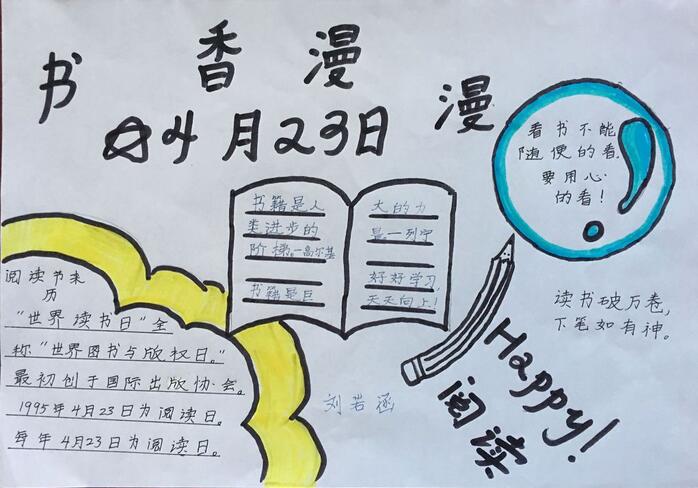 书香漫漫
☆4月23日
看书不能
随便的看，
要用心
的看！
书籍是人
类进步的
阶梯。—高尔基
书籍是巨
大的力
量—列宁
好好学习，
天天向上！
阅读书来
历
“世界读书日”全
称“世界图书与版权日。”
最初创于国际出版协会。
1995年4月23日为阅读日。
每年4月23日为阅读日。
读书破万卷，
下笔如有神。
Happy!
阅读
刘若涵